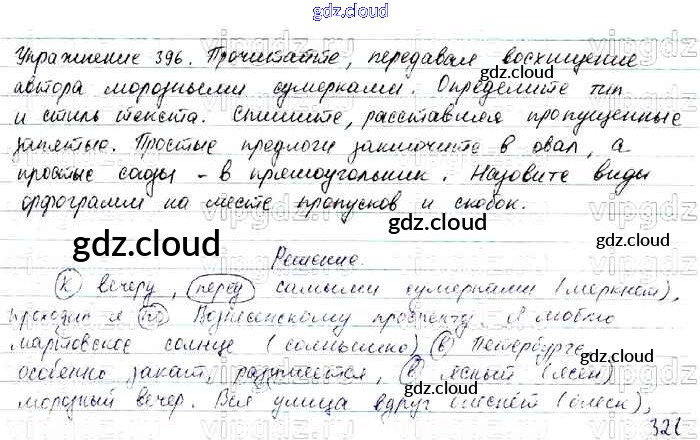 gdz.cloud
Упражнение 396. Прочитайте, передавая восхищение
автора морозными сумерками. Определите тип
и стиль текста. Спишите, расставляя пропущенные
запятые. Простые предлоги заключите в овал, а
простые союзы - в прямоугольник. Назовите виды
орфограмм на месте пропусков и скобок.
gdz.cloud
Решение.
К вечеру, перед самыми сумерками (меркнет),
проходил я по Вознесенскому проспекту. Я люблю
мартовское солнце (солнышко) в Петербурге,
особенно закат, разумеется, в ясный (ясен)
морозный вечер. Вся улица вдруг блеснёт (блеск),
gdz.cloud
gdz.cloud
gdz.cloud
gdz.cloud
gdz.cloud
vipgdz